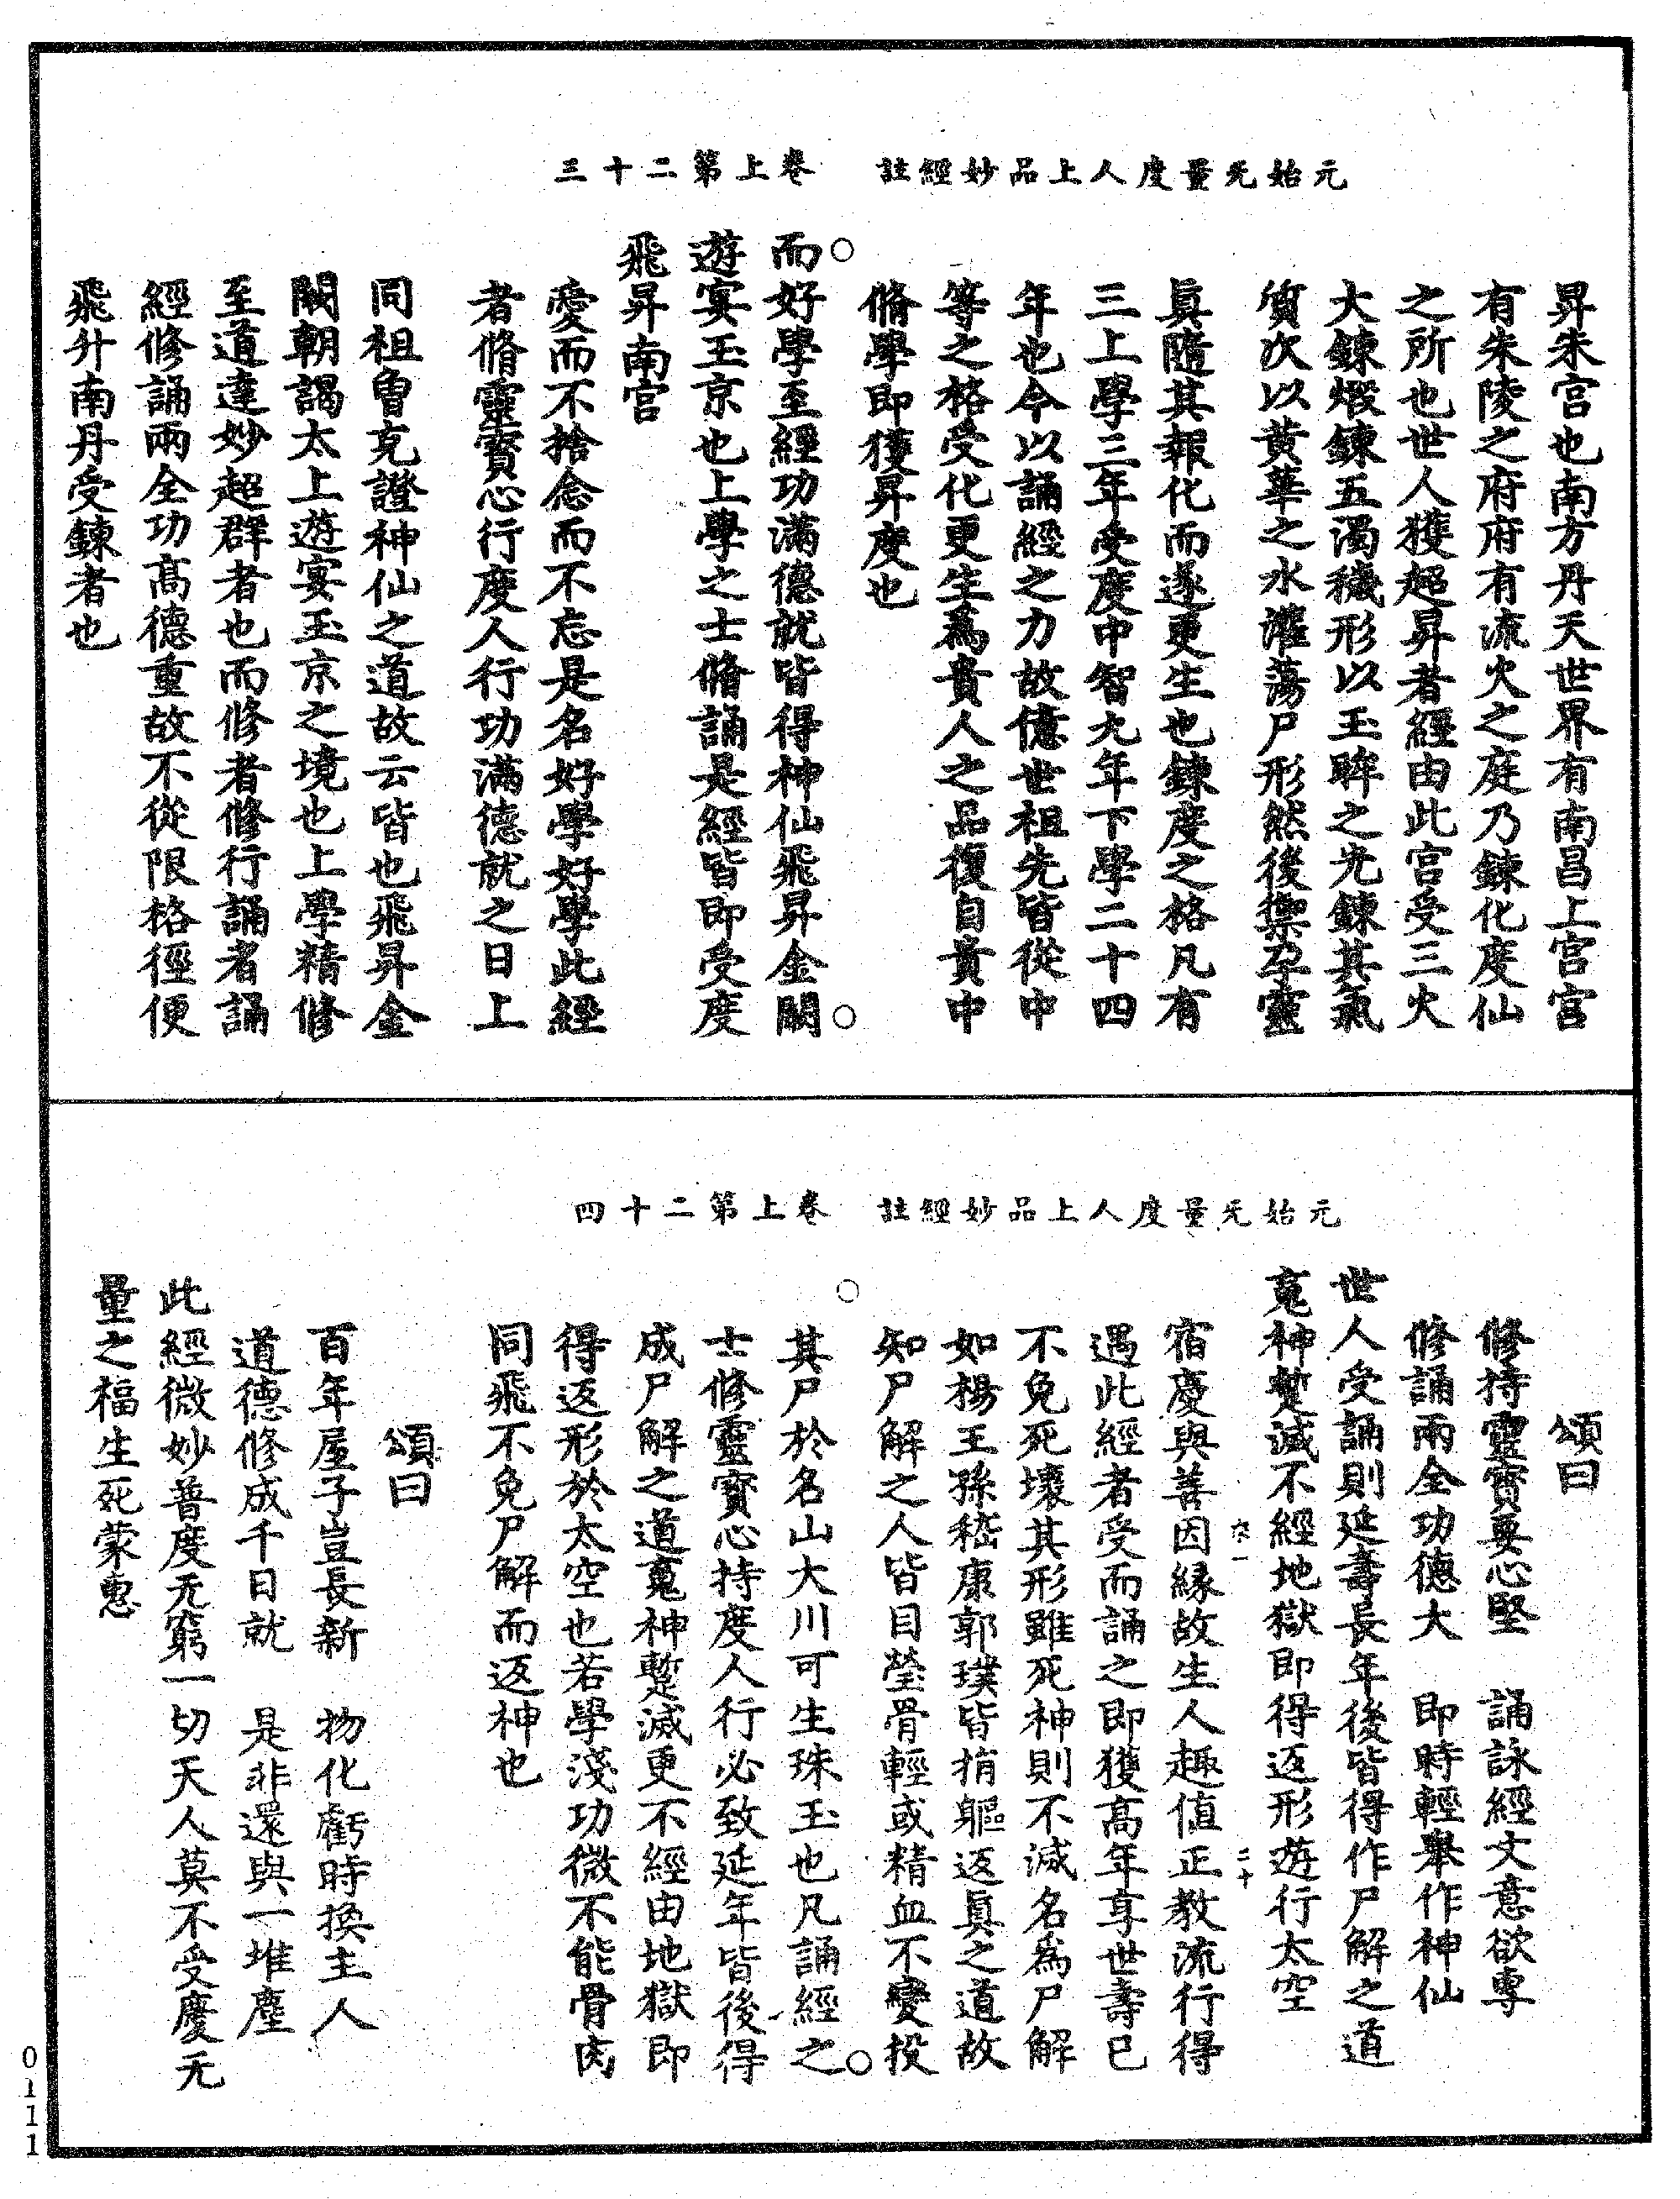 元始无量度人上品妙經註　卷上第二十三
昇朱宮也南方丹天世界有南昌上宮宮
有朱陵之府府有流火之庭乃鍊化度仙
之所也世人獲超昇者經由此宮受三火
大鍊煅鍊五濁穢形以玉眸之光鍊其氣
質次以黃華之水灌蕩尸形然後稟孕靈
眞隨其報化而遂更生也鍊度之格凡有
三上學三年受度中智九年下學二十四
年也今以誦經之力故億世祖先皆從中
等之格受化更生爲貴人之品復自貴中
脩學即獲昇度也
○而好學至經功滿德就皆得神仙飛昇金闕○
遊宴玉京也上學之士脩誦是經皆即受度
飛昇南宮
愛而不捨念而不忘是名好學好學此經
者脩靈寶心行度人行功滿德就之日上
同祖曾克證神仙之道故云皆也飛昇金
闕朝謁太上遊宴玉京之境也上學精修
至道達妙超群者也而修者修行誦者誦
經修誦兩全功高德重故不從限格徑便
飛升南丹受鍊者也
元始无量度人上品妙經註　卷上第二十四
頌曰
修持靈寶要心堅　誦詠經文意欲專
修誦兩全功德大　即時輕舉作神仙
世人受誦則延壽長年後皆得作尸解之道
䰟神蹔滅不經地獄即得返形遊行太空
宿慶與善因緣故生人趣值正教流行得
遇此經者受而誦之即獲高年享世壽已
不免死壞其形雖死神則不滅名爲尸解
如楊王孫嵇康郭璞皆捐軀返眞之道故
知尸解之人皆目瑩骨輕或精血不變投
○其尸於名山大川可生珠玉也凡誦經之○
士修靈寶心持度人行必致延年皆後得
成尸解之道䰟神蹔滅更不經由地獄即
得返形於太空也若學淺功微不能骨肉
同飛不免尸解而返神也
頌曰
百年屋子豈長新　物化虧時換主人
道德修成千日就　是非還與一堆塵
此經微妙普度无窮一切天人莫不受慶无
量之福生死蒙惠
0111